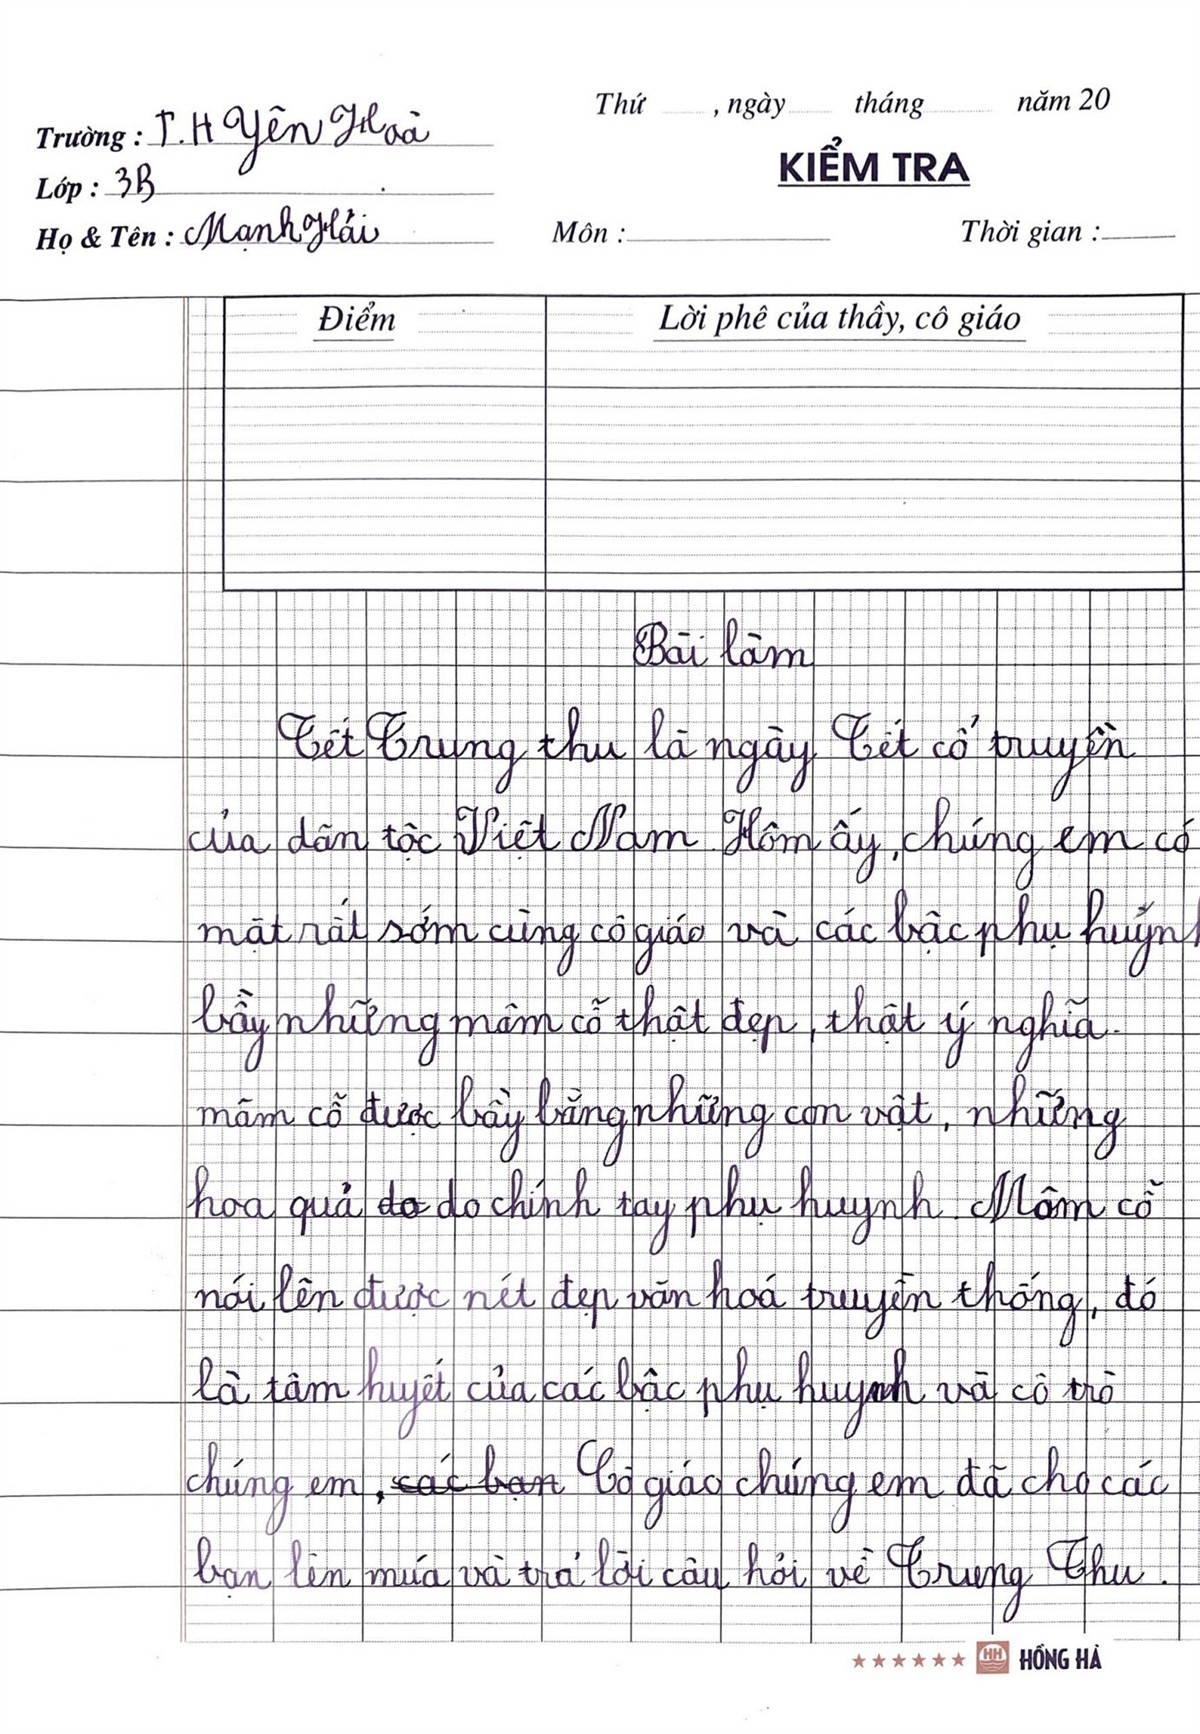 Thứ , ngày tháng năm 20
Trường : T.H Yên Hoà
KIỂM TRA
Lớp : 3B
Họ & Tên : Mạnh Hải Môn : Thời gian :
Điểm Lời phê của thầy, cô giáo
Bài làm
Tết Trung thu là ngày Tết cổ truyền
của dân tộc Việt Nam. Hôm ấy, chúng em có
mặt rất sớm cùng cô giáo và các bậc phụ huýnh
bầy những mâm cỗ thật đẹp, thật ý nghĩa.
mâm cỗ được bầy bằng những con vật, những
hoa quả do do chính tay phụ huynh. Mâm cỗ
nói lên được nét đẹp văn hoá truyền thống, đó
là tâm huyết của các bậc phụ huynh và cô trò
chúng em, các bạn Cô giáo chúng em đã cho các
bạn lên múa và trả lời câu hỏi về Trung Thu.
HH HỒNG HÀ